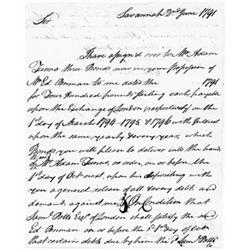 Savannah 2nd June 1791
Sir
I have assigned over to Mr. Adam
Tunno three Bonds now in your Possession of
Mr. Ed. Penman to me dated the 1791
for Four Hundred Pounds Sterling each payable
upon the Exchange of London respectively on the
1st Day of March 1794. 1795 & 1796 with Interest
upon the same yearly & every year, which
Bonds you will please to deliver into the hands
of Mr. Adam Tunno, or order, on or before the
1st Day of next upon his depositing with
you a general release of all every debt and
demands against me On Condition that
Saml. Potts Esqr. of London shall satisfy the sd.
Ed. Penman on or before the 1st Day of
that certain debts due by him the sd. Saml. Potts